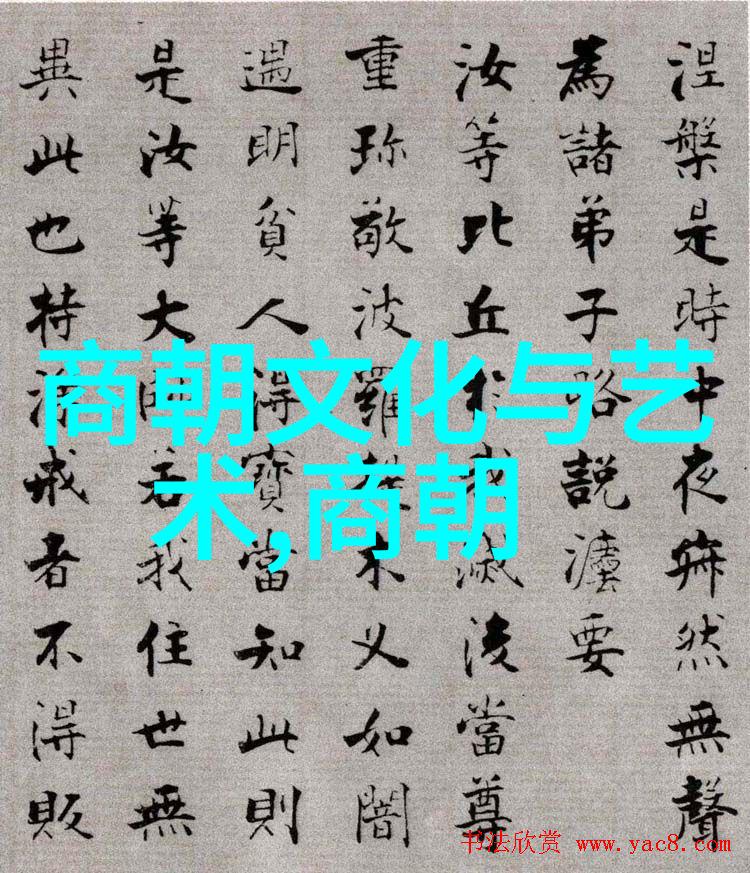 涅槃是時中夜寂然無聲
為諸弟子略說灋要
汝等比丘於我滅後當尊
重珍敬波羅提木叉如闇
遇明貧人得寶當知此則
是汝等大師若我住世無
異此也持淨戒者不得販
商朝文化与艺
术,商朝
书法欣赏 www.yac8.com